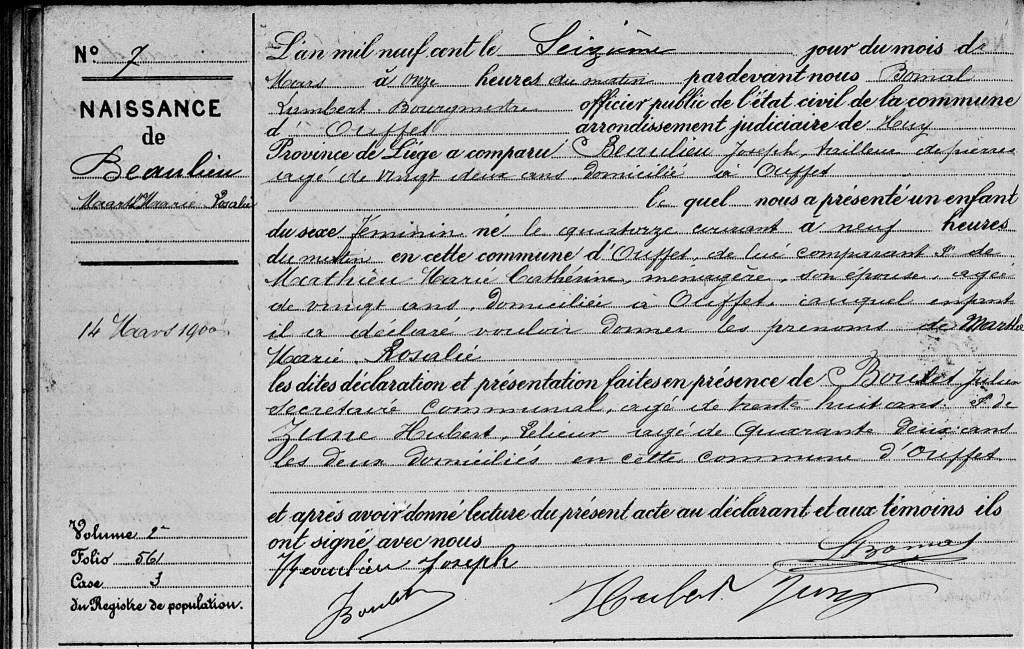 N° 7
NAISSANCE
de
Beaulieu
Marthe Marie Rosalie
14 Mars 1900
Volume 2
Folio 561
Case 3
du Registre de population.
L'an mil neuf cent le Seizième jour du mois de
Mars à onze heures du matin pardevant nous Bomal
Lambert Bourgmestre officier public de l'état civil de la commune
d'Ouffet arrondissement judiciaire de Huy
Province de Liége a comparu Beaulieu Joseph, tailleur de pierres
agé de vingt deux ans, domicilié à Ouffet
le quel nous a présenté un enfant
du sexe féminin né le quatorze courant à neuf heures
du matin en cette commune d'Ouffet, de lui comparant & de
Mathieu Marie Cathérine, ménagère, son épouse, agée
de vingt ans, domiciliée à Ouffet, auquel enfant
il a déclaré vouloir donner les prenoms de Marthe
Marie Rosalie
les dites déclaration et présentation faites en présence de Boulet Julien
secrétaire communal, agé de trente huit ans & de
Zune Hubert, relieur agé de quarante deux ans
les deux domiciliés en cette commune d'Ouffet
et après avoir donné lecture du présent acte au déclarant et aux témoins ils
ont signé avec nous
Beaulieu Joseph LBomal
JBoulet Hubert Zune